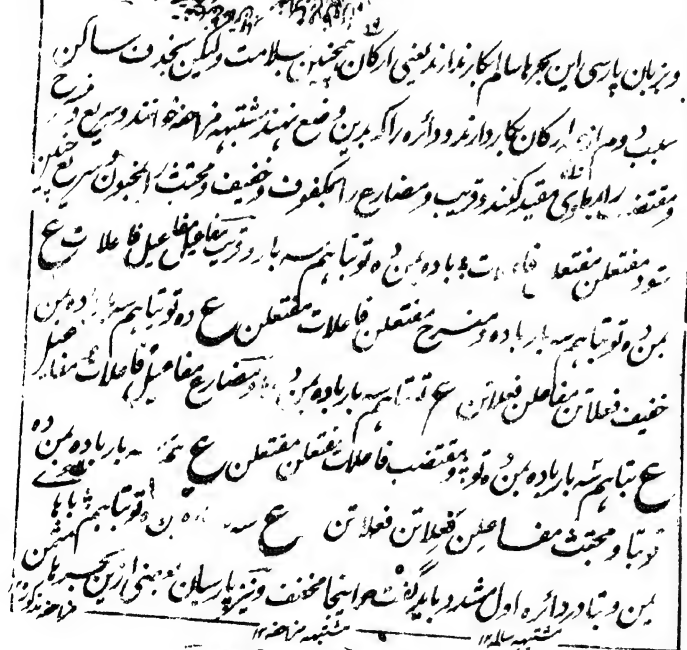 و بزبان پارسی این بحرها سالم بکار ندارند یعنی ارکان همچنین بسلامت ولیکن بحذف ساکن
سبب دوم از ارکان بکار دارند و دائره را که بدین وضع نهند مشتبهه مزاحفه خوانند و سریع و منسرح
و مقتضب را بمطوی مقید کنند و قریب و مضارع را بمکفوف و خفیف و مجتث را بمخبون و سریع چنین
شود مفتعلن مفتعلن فاعلات ع باده بمن ده تو بتا هم سه بار و قریب مفاعیل مفاعیل فاعلات ع
بمن ده تو بتا هم سه بار باده و منسرح مفتعلن فاعلات مفتعلن ع ده تو بتا هم سه بار باده بمن
خفیف فعلاتن مفاعلن فعلاتن ع تو بتا هم سه بار باده بمن ده و مضارع مفاعیل فاعلات مفاعیل
ع بتا هم سه بار باده بمن ده تو و مقتضب فاعلات مفتعلن مفتعلن ع هم سه بار باده بمن ده
تو بتا و مجتث مفاعلن فعلاتن فعلاتن ع سه بار باده بمن ده تو بتا هم
بمن و بتا در دائره اول مشدد باید گفت و اینجا مخفف و نیز پارسیان بعضی ازین بحرها مثمن
مشتبهه سالمه ۱۲ مشتبهه مزاحفه ۱۲